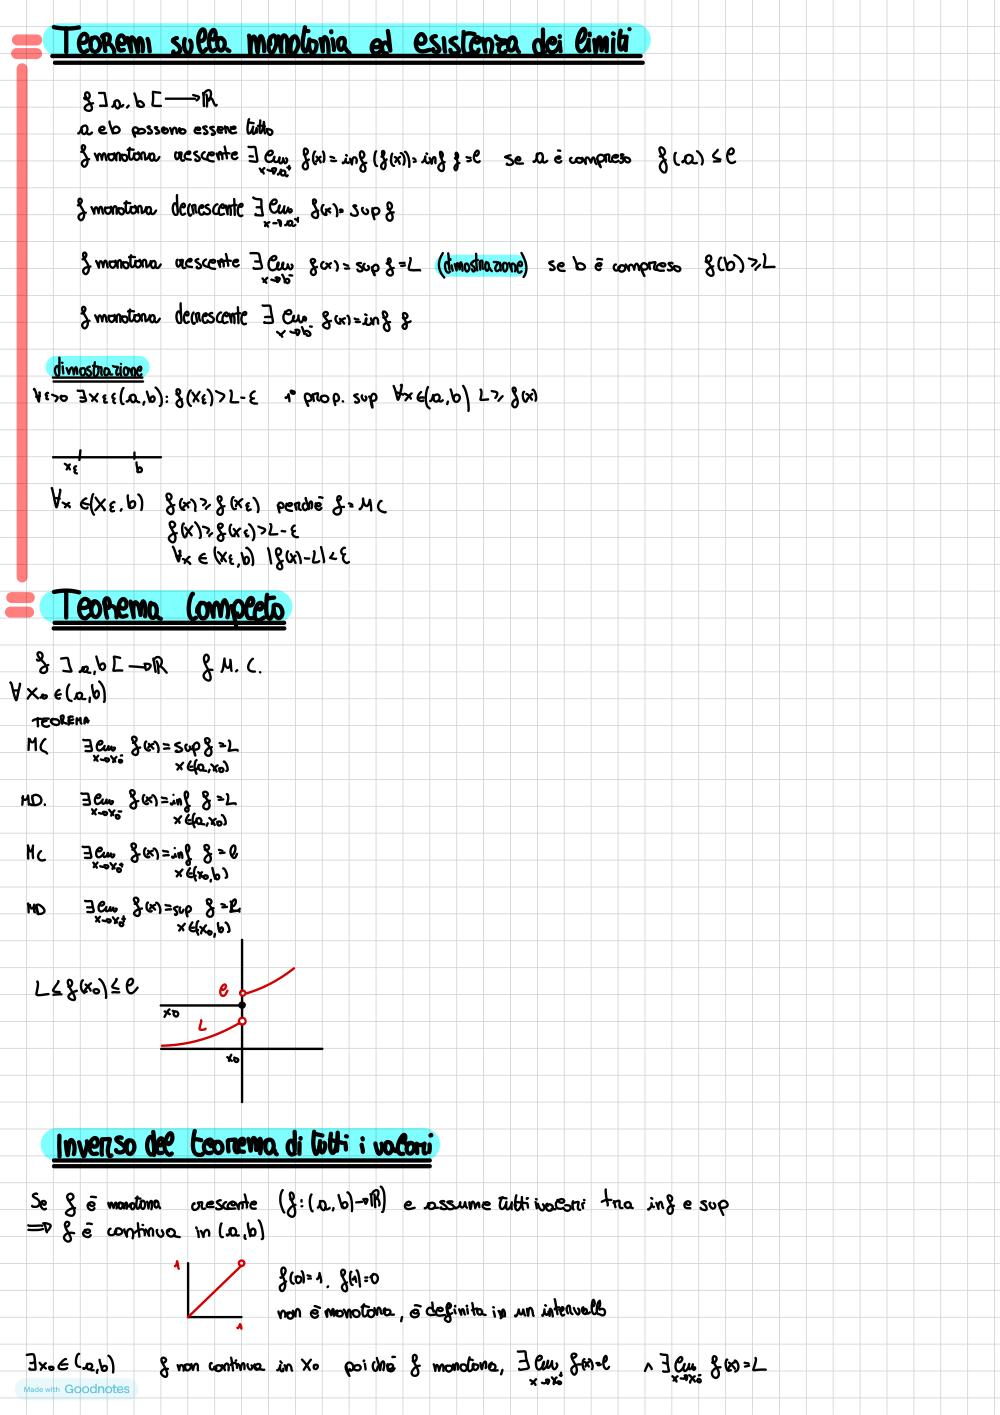 Teoremi sulla monotonia ed esistenza dei limiti
f ]a,b[ → ℝ
a e b possono essere tutto
f monotona crescente ∃ lim x→a⁺ f(x) = inf (f(x)) = inf f = l se a è compreso f(a) ≤ l
f monotona decrescente ∃ lim x→a⁺ f(x) = sup f
f monotona crescente ∃ lim x→b⁻ f(x) = sup f = L (dimostrazione) se b è compreso f(b) ≥ L
f monotona decrescente ∃ lim x→b⁻ f(x) = inf f
dimostrazione
∀ε>0 ∃xε ε(a,b): f(xε) > L-ε 1° prop. sup ∀x∈(a,b) L ≥ f(x)
xε b
∀x ∈(xε,b) f(x) ≥ f(xε) perché f = MC
f(x) ≥ f(xε) > L-ε
∀x ∈ (xε,b) |f(x)-L| < ε
Teorema Completo
f ]a,b[ → ℝ f M.C.
∀ x₀ ∈ (a,b)
TEOREMA
MC ∃ lim x→x₀⁻ f(x) = sup f = L
x∈(a,x₀)
MD. ∃ lim x→x₀⁻ f(x) = inf f = L
x∈(a,x₀)
MC ∃ lim x→x₀⁺ f(x) = inf f = l
x∈(x₀,b)
MD ∃ lim x→x₀⁺ f(x) = sup f = l
x∈(x₀,b)
L ≤ f(x₀) ≤ l
l
x₀
L
x₀
Inverso del teorema di tutti i valori
Se f è monotona crescente (f:(a,b)→ℝ) e assume tutti i valori tra inf e sup
⟹ f è continua in (a,b)
1
f(0)=1, f(1)=0
non è monotona, è definita in un intervallo
1
∃x₀∈(a,b) f non continua in x₀ poiché f monotona, ∃ lim x→x₀⁺ f(x)=l ∧ ∃ lim x→x₀⁻ f(x)=L
Made with Goodnotes